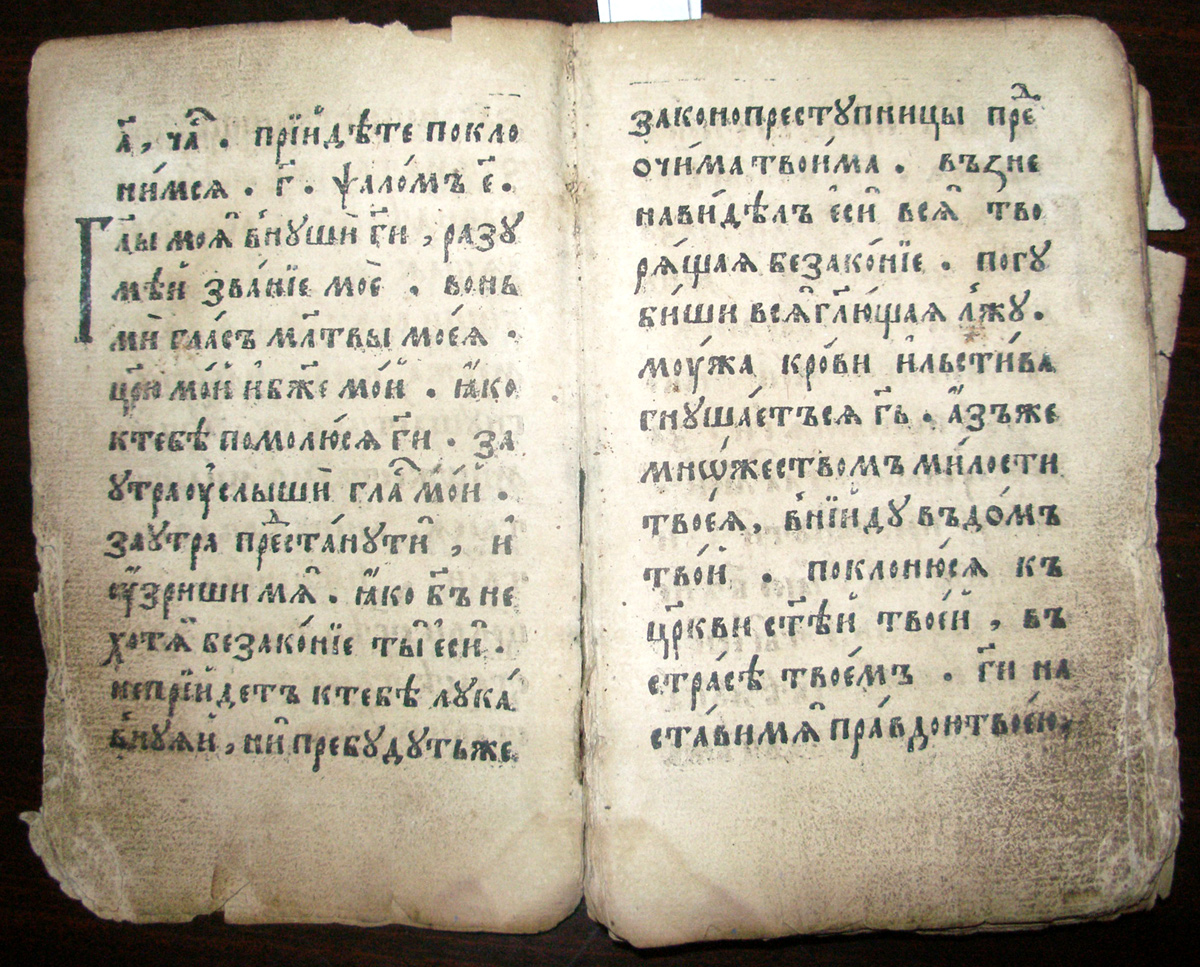 а҃, ча́с. прїидѣ́те покло
ни́мсѧ. г҃. ѱало́мъ е҃.
Гл҃ы моѧ̀ внꙋшѝ гд҃и, разꙋ
мѣ́й зва́нїе моѐ. вонь
мѝ гла́съ мл҃твы мое́ѧ.
цр҃ю мо́й и҆ бж҃е мо́й. ꙗ҆́ко
ктебѣ̀ помолю́сѧ гд҃и. за
ꙋтра оу҆слы́шѝ гла́с мо́й.
заꙋтра предста́нꙋтѝ, и҆
оу҆́зриши мѧ̀. ꙗ҆́ко бг҃ъ не
хотѧ̀ беззако́нїе ты̀ є҆сѝ.
непрїи́детъ ктебѣ̀ лꙋка́
внꙋѧй, нѝ пребꙋдꙋтьже
законопрестꙋпницы пред
очи́ма твои́ма. възне
нави́дѣлъ є҆сѝ всѧ̀ тво
рѧ́щаѧ безако́нїе. погꙋ
би́ши всѧ̀ гл҃ю́щаѧ лжꙋ̀.
моу́жа кро́ви и҆льсти́ва
гнꙋша́етъсѧ гд҃ь. а҆́зъже
мно́жествомъ ми́лости
твоеѧ̀, вни́идꙋ въдо́мъ
тво́й. поклоню́сѧ къ
цр҃кви ст҃ѣ́й твое́й, въ
стра́сѣ твое́мъ. гд҃и на
ста́ви мѧ̀ пра́вдою твое́ю,